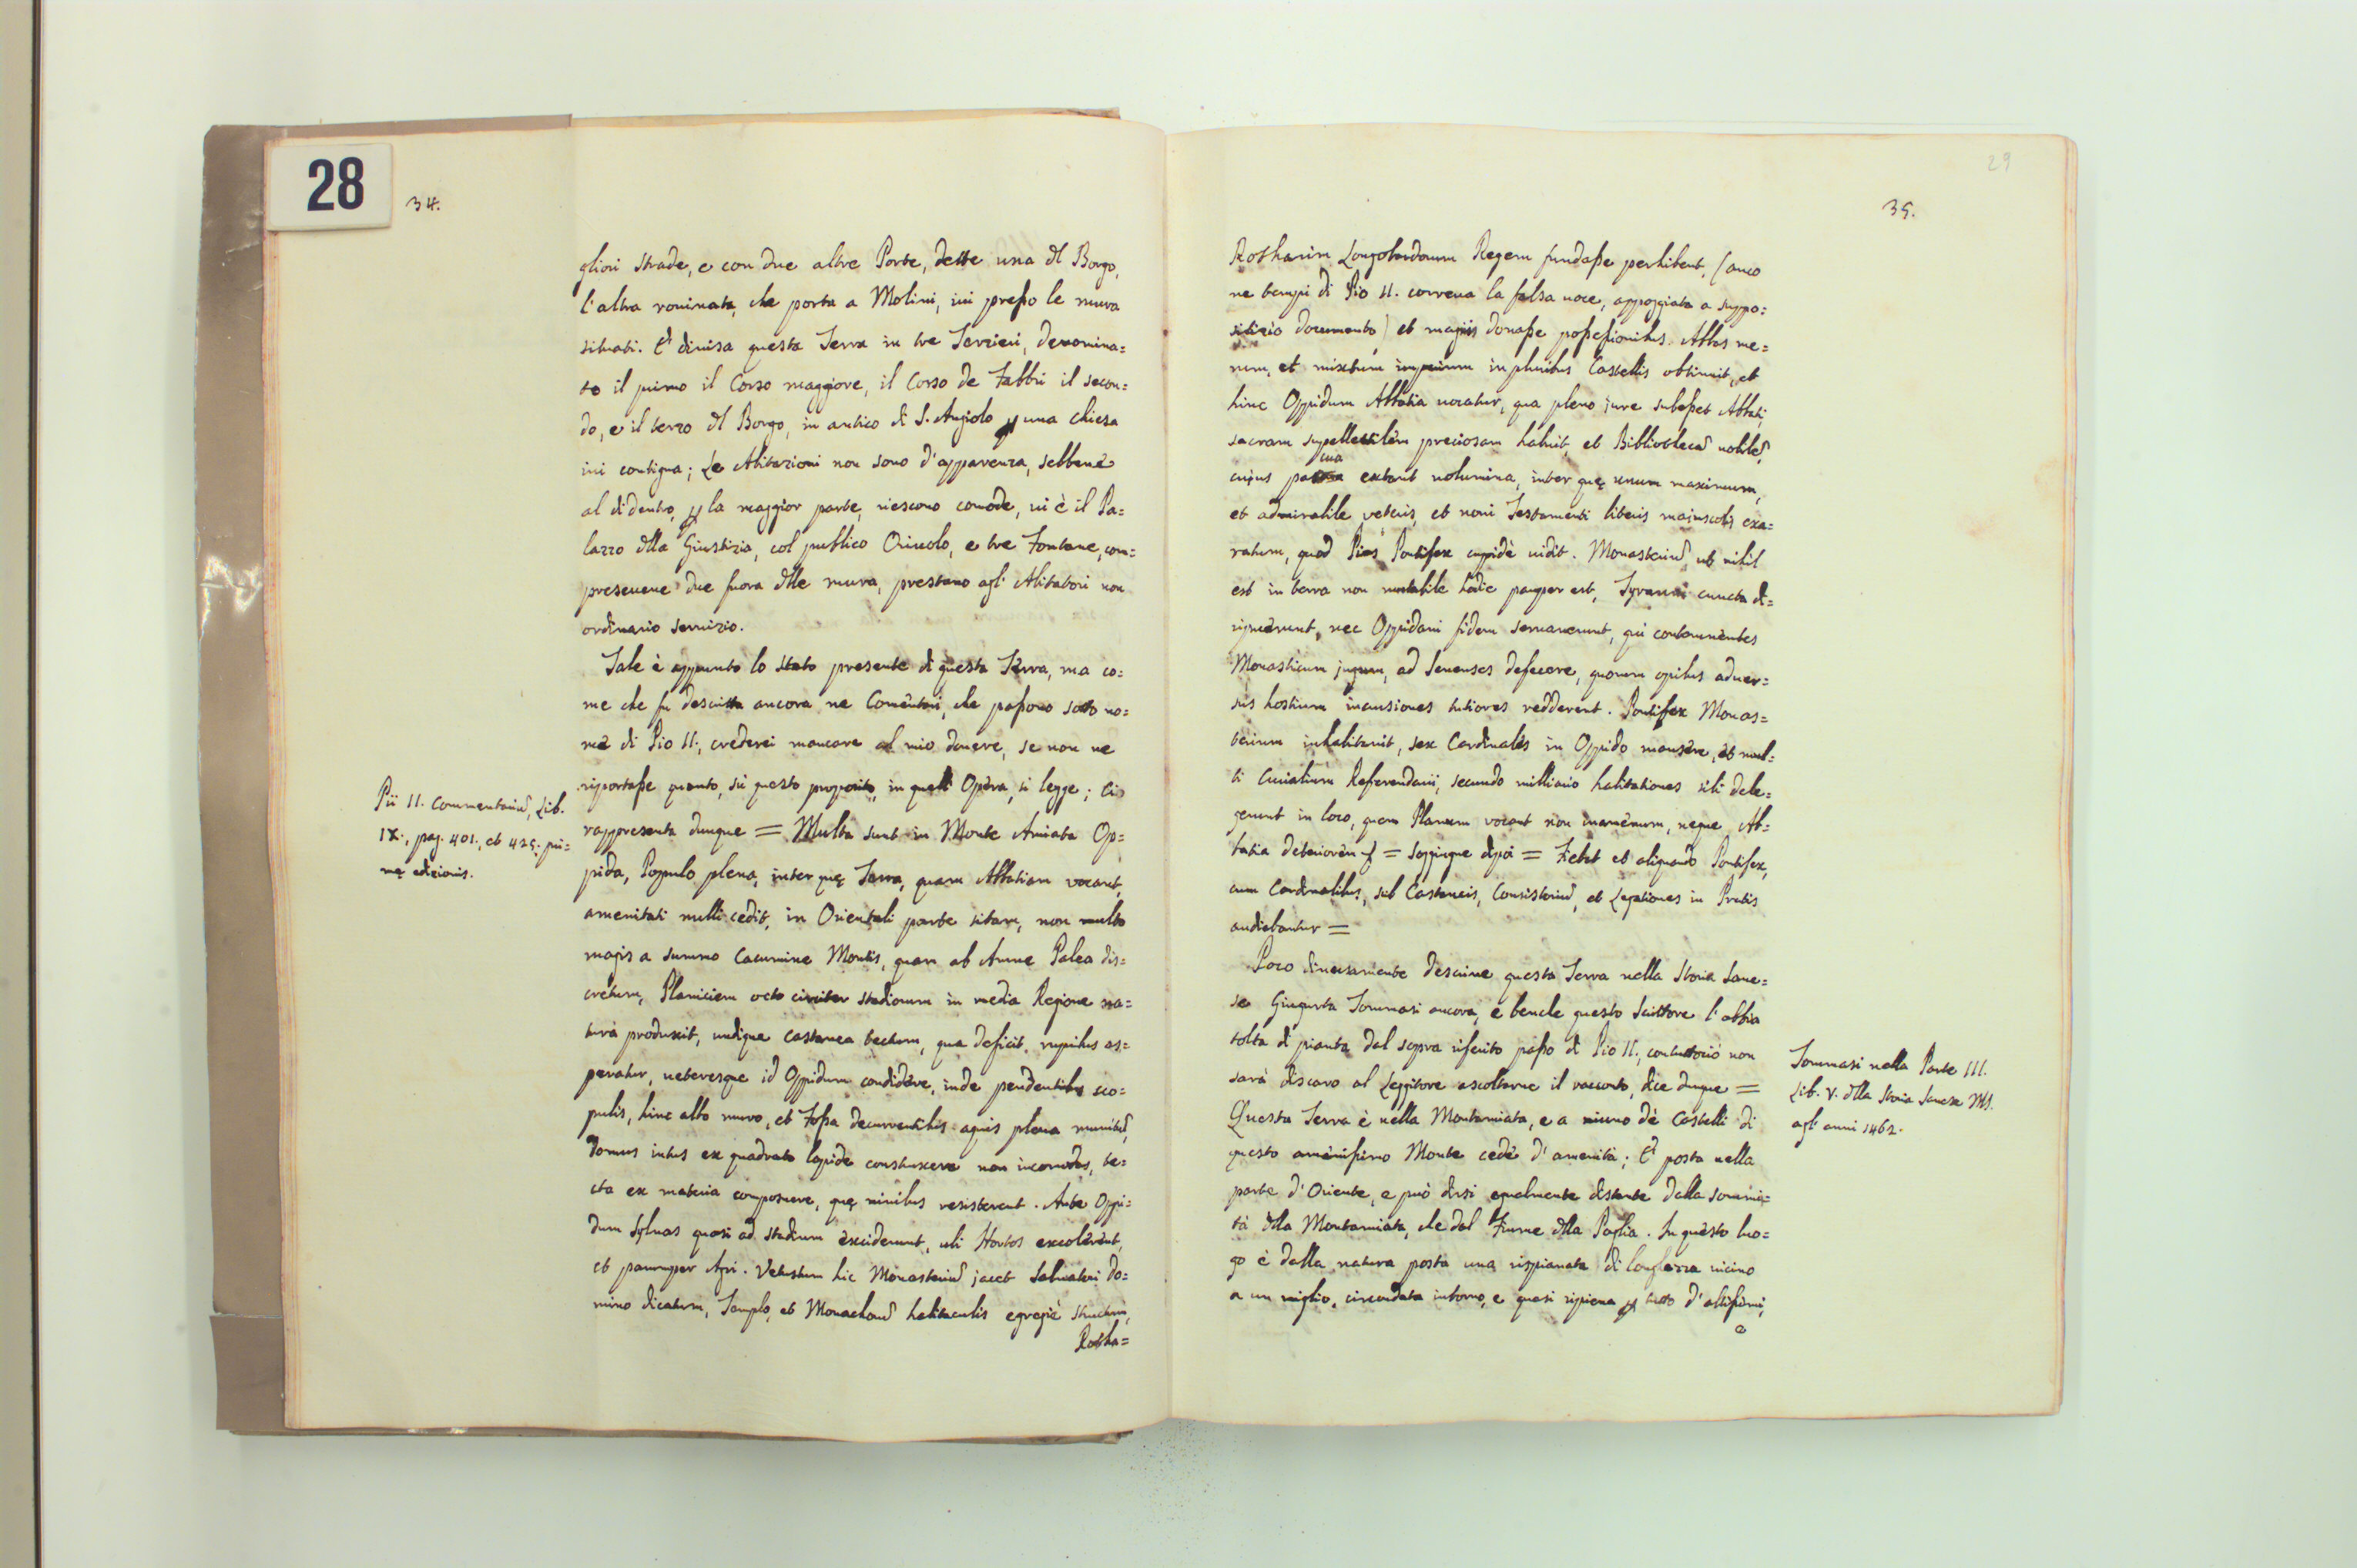 28
34.
gliori strade, e con due altre Porte, dette una dl Borgo,
l'altra rovinata, che porta a Molini, ivi presso le mura
situati. E' divisa questa Terra in tre Terzieri, denomina=
to il primo il Corso maggiore, il Corso de Fabbri il secon=
do, e il terzo dl Borgo, in antico di S. Angiolo p una chiesa
ivi contigua; Le Abitazioni non sono d'apparenza, sebbene
al didentro, p la maggior parte, riescono comode, vi è il Pa=
lazzo dlla Giustizia, col publico Oriuolo, e tre Fontane, com=
presevene due fuora dlle mura, prestano agl' Abitatori non
ordinario servizio.
Tale è appunto lo stato presente di questa Terra, ma co=
me che fu descritta ancora ne Comentari, che passono sotto no=
me di Pio II., crederei mancare al mio dovere, se non ne
riportasse quanto, sù questo proposito, in quell' Opera, si legge; Ci
rappresenta dunque = Multa sunt in Monte Amiata Op=
pida, Populo plena, inter quę Terra, quam Abbatiam vocant,
amenitati nulli cedit, in Orientali parte sitam, non multo
magis a summo Cacumine Montis, quam ab Amne Palea dis=
cretum, Planiciem octo circiter stadiorum in media Regione na=
tura produxit, undique castanea tectum, qua deficit, rupibus as=
peratur, veteresque id Oppidum condidère, inde pendentibus sco=
pulis, hinc alto muro, et Fossa decurrentibus aquis plena munitu,
Domus intus ex quadrato lapide construxere non incomodas, te=
cta ex materia composuere, quę nivibus resisterent. Ante Oppi=
dum Sylvas quasi ad stadium exciderunt, ubi Hortos excolerent,
et parumper Agri. Vetustum hic Monasteriu jacet Salvatori Do=
mino dicatum, Templo, et Monachoru habitaculis egregiè structum,
Rotha=
Pii II. Commentariu, Lib.
IX., pag. 401., et 425. pri=
mę edicionis.
29
35.
Rotharim Longobardorum Regem fundasse perhibent, (anco
ne tempi di Pio II. correva la falsa voce, appoggiata a suppo=
sitizio documento) et magnis donasse possessionibus. Abbas me=
rum, et mixtum imperium in pluribus Castellis obtinuit, et
hinc Oppidum Abbatia vocatur, qua pleno jure subesset Abbati,
sacram supellectilem preciosam habuit, et Bibliotheca nobile,
cujus pauca extant volumina, inter quę unum maximum,
et admirabile veteris, et novi Testamenti literis majusculis exa=
ratum, quod Pius Pontifex cupidè vidit. Monasteriu, ut nihil
est in terra non mutabile hodie pauper est, Tyranni cuncta di=
ripuerunt, nec Oppidani fidem servaverunt, qui contemnentes
Monasticum jugum, ad Senenses defecere, quorum opibus adver=
sus hostium incursiones tutiores redderent. Pontifex Monas=
terium inhabitavit, sex Cardinales in Oppido mansere, et mul=
ti Curialium Referendarii, secundo milliario habitationes sibi dele=
gerunt in loco, quem Planum vocant non inamenum, neque Ab=
batia deteriorem = soggiugne dipoi = Fiebat et aliquando Pontifex,
cum Cardinalibus, sub Castaneis, Consistoriu, et Legationes in Pratis
audiebantur =
Poco diversamente descrive questa Terra nella Storia Sane=
se Giugurta Tommasi ancora, e benche questo Scrittore l'abbia
tolta di pianta dal sopra riferito passo di Pio II., contuttociò non
sarà discaro al Leggitore ascoltarne il racconto, dice dunque =
Questa Terra è nella Montamiata, e a niuno dè Castelli di
questo amenissimo Monte cede d'amenità; E' posta nella
parte d'Oriente, e può dirsi egualmente distante dalla sommi=
tà dlla Montamiata, che dal Fiume dlla Paglia. In questo luo=
go è dalla natura posta una rispianata di longhezza vicino
a un miglio, circondata intorno, e quasi ripiena p tutto d'altissimi,
e
Tommasi nella Parte III.
Lib. V. dlla Storia Sanese MS.
agl' anni 1462.